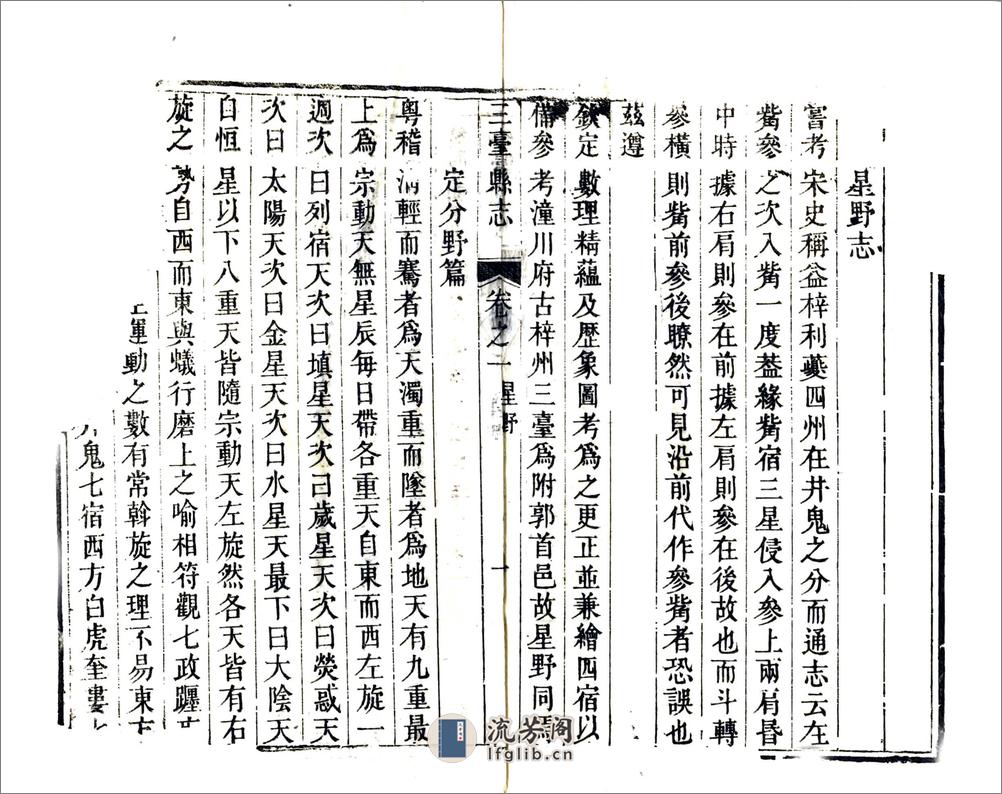 星野志
嘗考宋史稱益梓利夔四州在井鬼之分而通志云在
觜參之次入觜一度葢緣觜宿三星侵入參上兩肩昏
中時據右肩則參在前據左肩則參在後故也而斗轉
參橫則觜前參後瞭然可見沿前代作參觜者恐誤也
茲遵
欽定數理精蘊及歷象圖考爲之更正並兼繪四宿以
備參考潼川府古梓州三臺爲附郭首邑故星野同焉
三臺縣志 卷之二 星野 一
定分野篇
粵稽淸輕而騫者爲天濁重而墜者爲地天有九重最
上爲宗動天無星辰每日帶各重天自東而西左旋一
週次曰列宿天次曰塡星天次曰歲星天次曰熒惑天
次曰太陽天次曰金星天次曰水星天最下曰大陰天
自恒星以下八重天皆隨宗動天左旋然各天皆有右
旋之勢自西而東與蟻行磨上之喻相符觀七政躔
運動之數有常斡旋之理不易東方
鬼七宿西方白虎奎婁
流芳阁
lfglib.cn